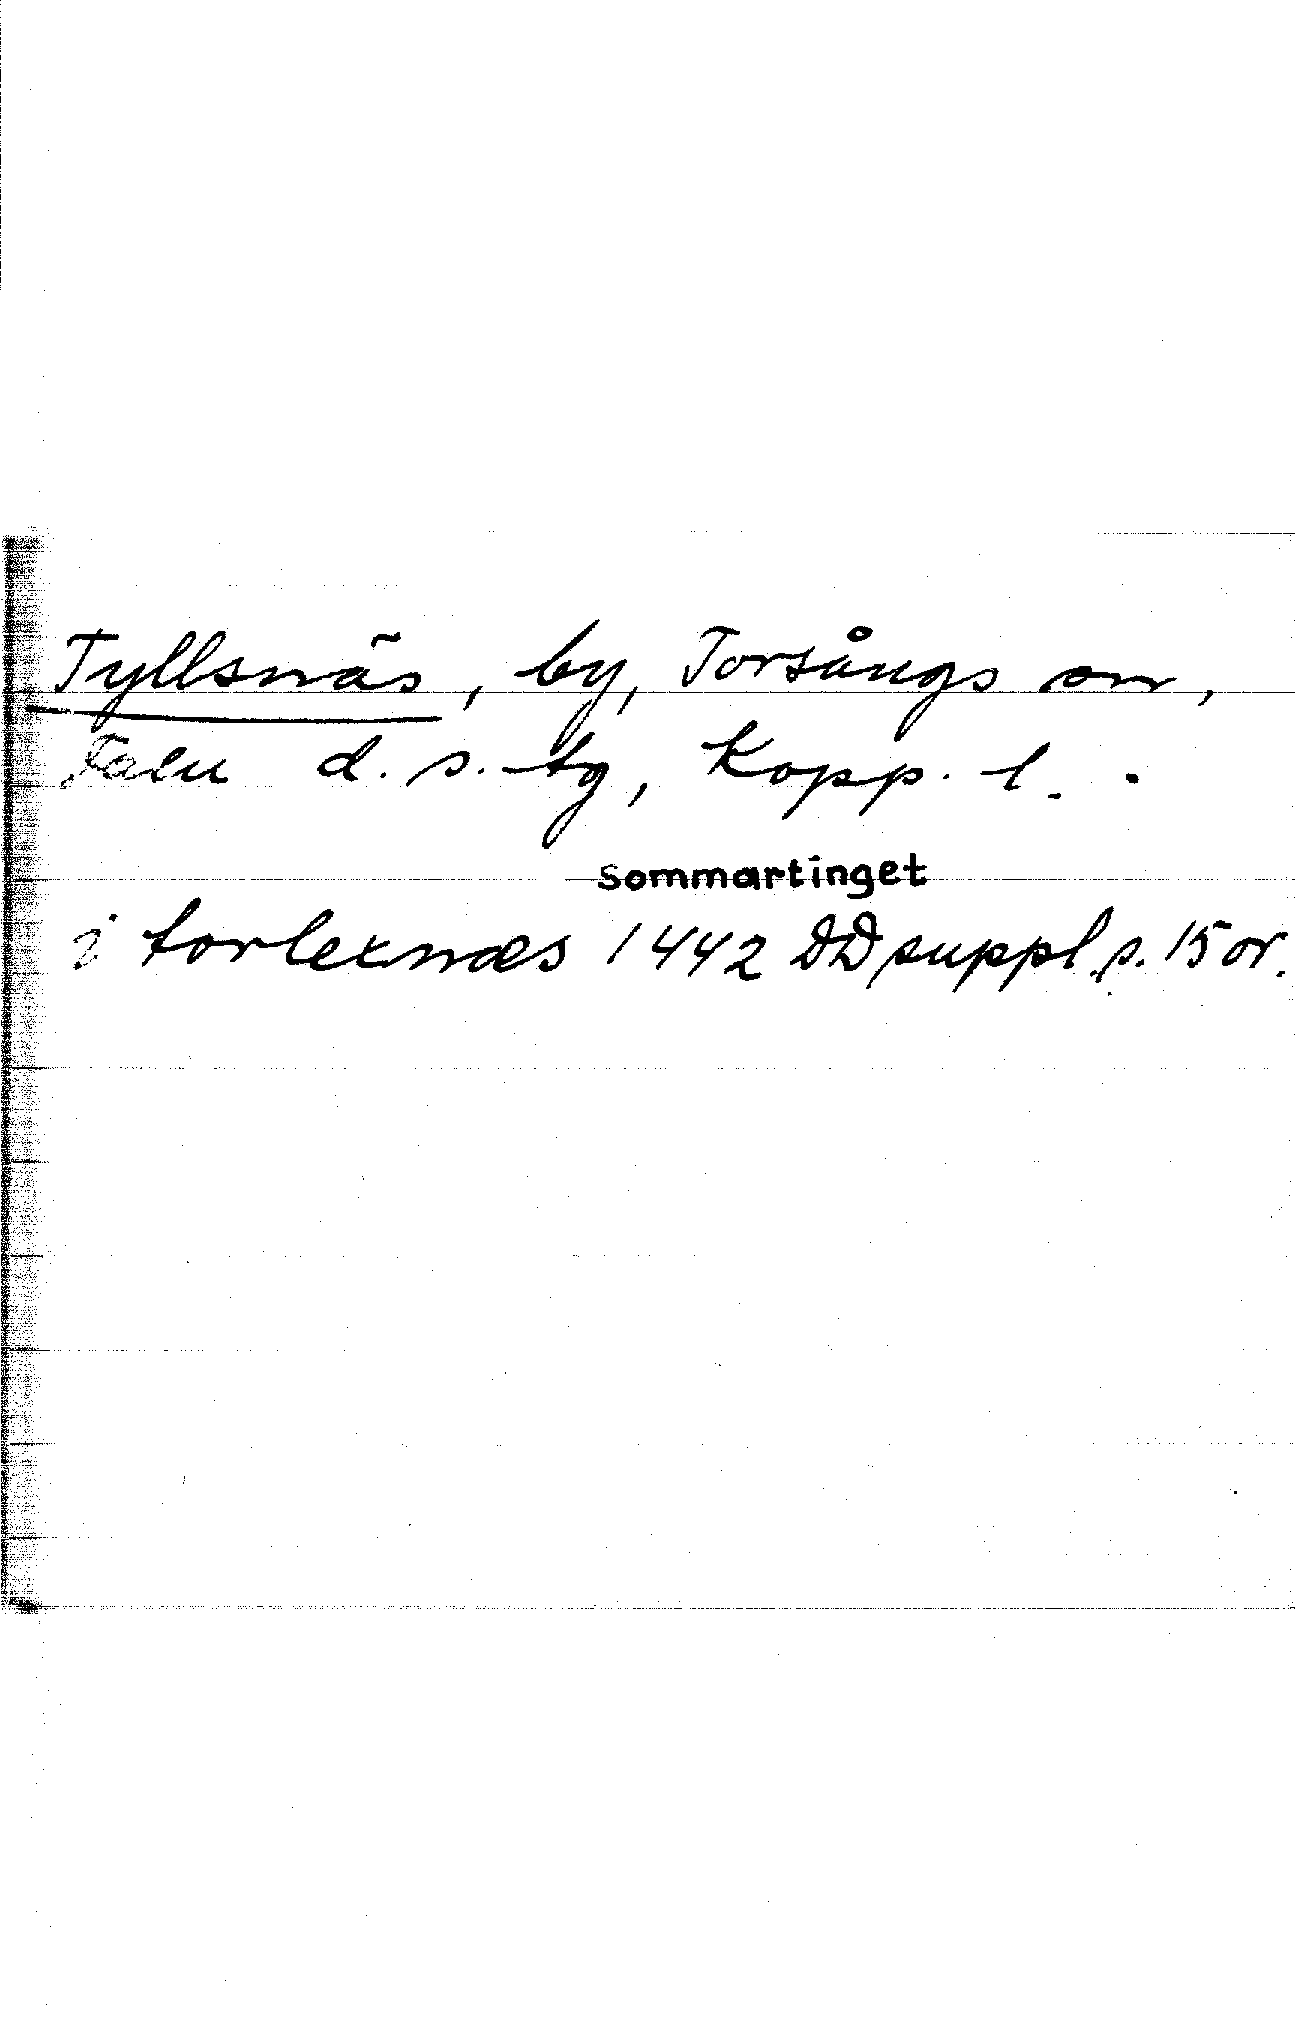 Tyllsnäs, by, Torsångs sn,
Falu d. s. tg, Kopp. l.
sommartinget
i torlexnæs 1442 DD suppl. s. 15 or.